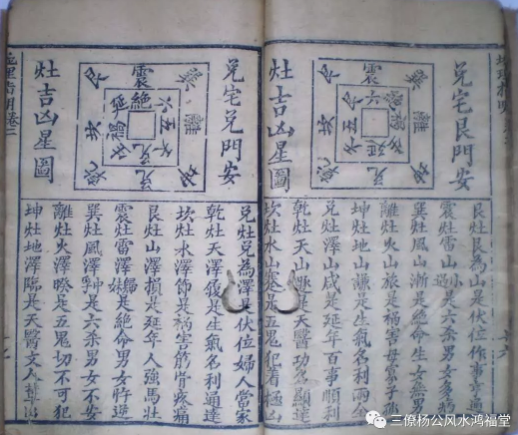 兌宅艮門安
震
離
坤
兌
乾
坎
艮
灶吉凶星圖
艮灶艮為山是伏位作事亨通
震灶雷山小過是六杀男女多
巽灶風山漸是絕命生女無男
離灶火山旅是禍害母寡子
坤灶地山謙是生氣名利兩全
兌灶澤山咸是延年百事順利
乾灶天山遯是天醫功名顯達
坎灶水山蹇是五鬼犯着極凶
兌宅兌門安
震
絕
六
五
離
坤
兌
乾
坎
艮
灶吉凶星圖
兌灶兌為澤是伏位婦人當家
乾灶天澤履是生氣名利通達
坎灶水澤節是禍生筋骨疼痛
艮灶山澤損是延年人強馬壯
震灶雷澤歸妹是絕命男女悖逆
巽灶風澤中孚是六杀男女不安
離灶火澤睽是五鬼切不可犯
坤灶地澤臨是天醫文人
地理指明卷二
三僚杨公风水鸿福堂